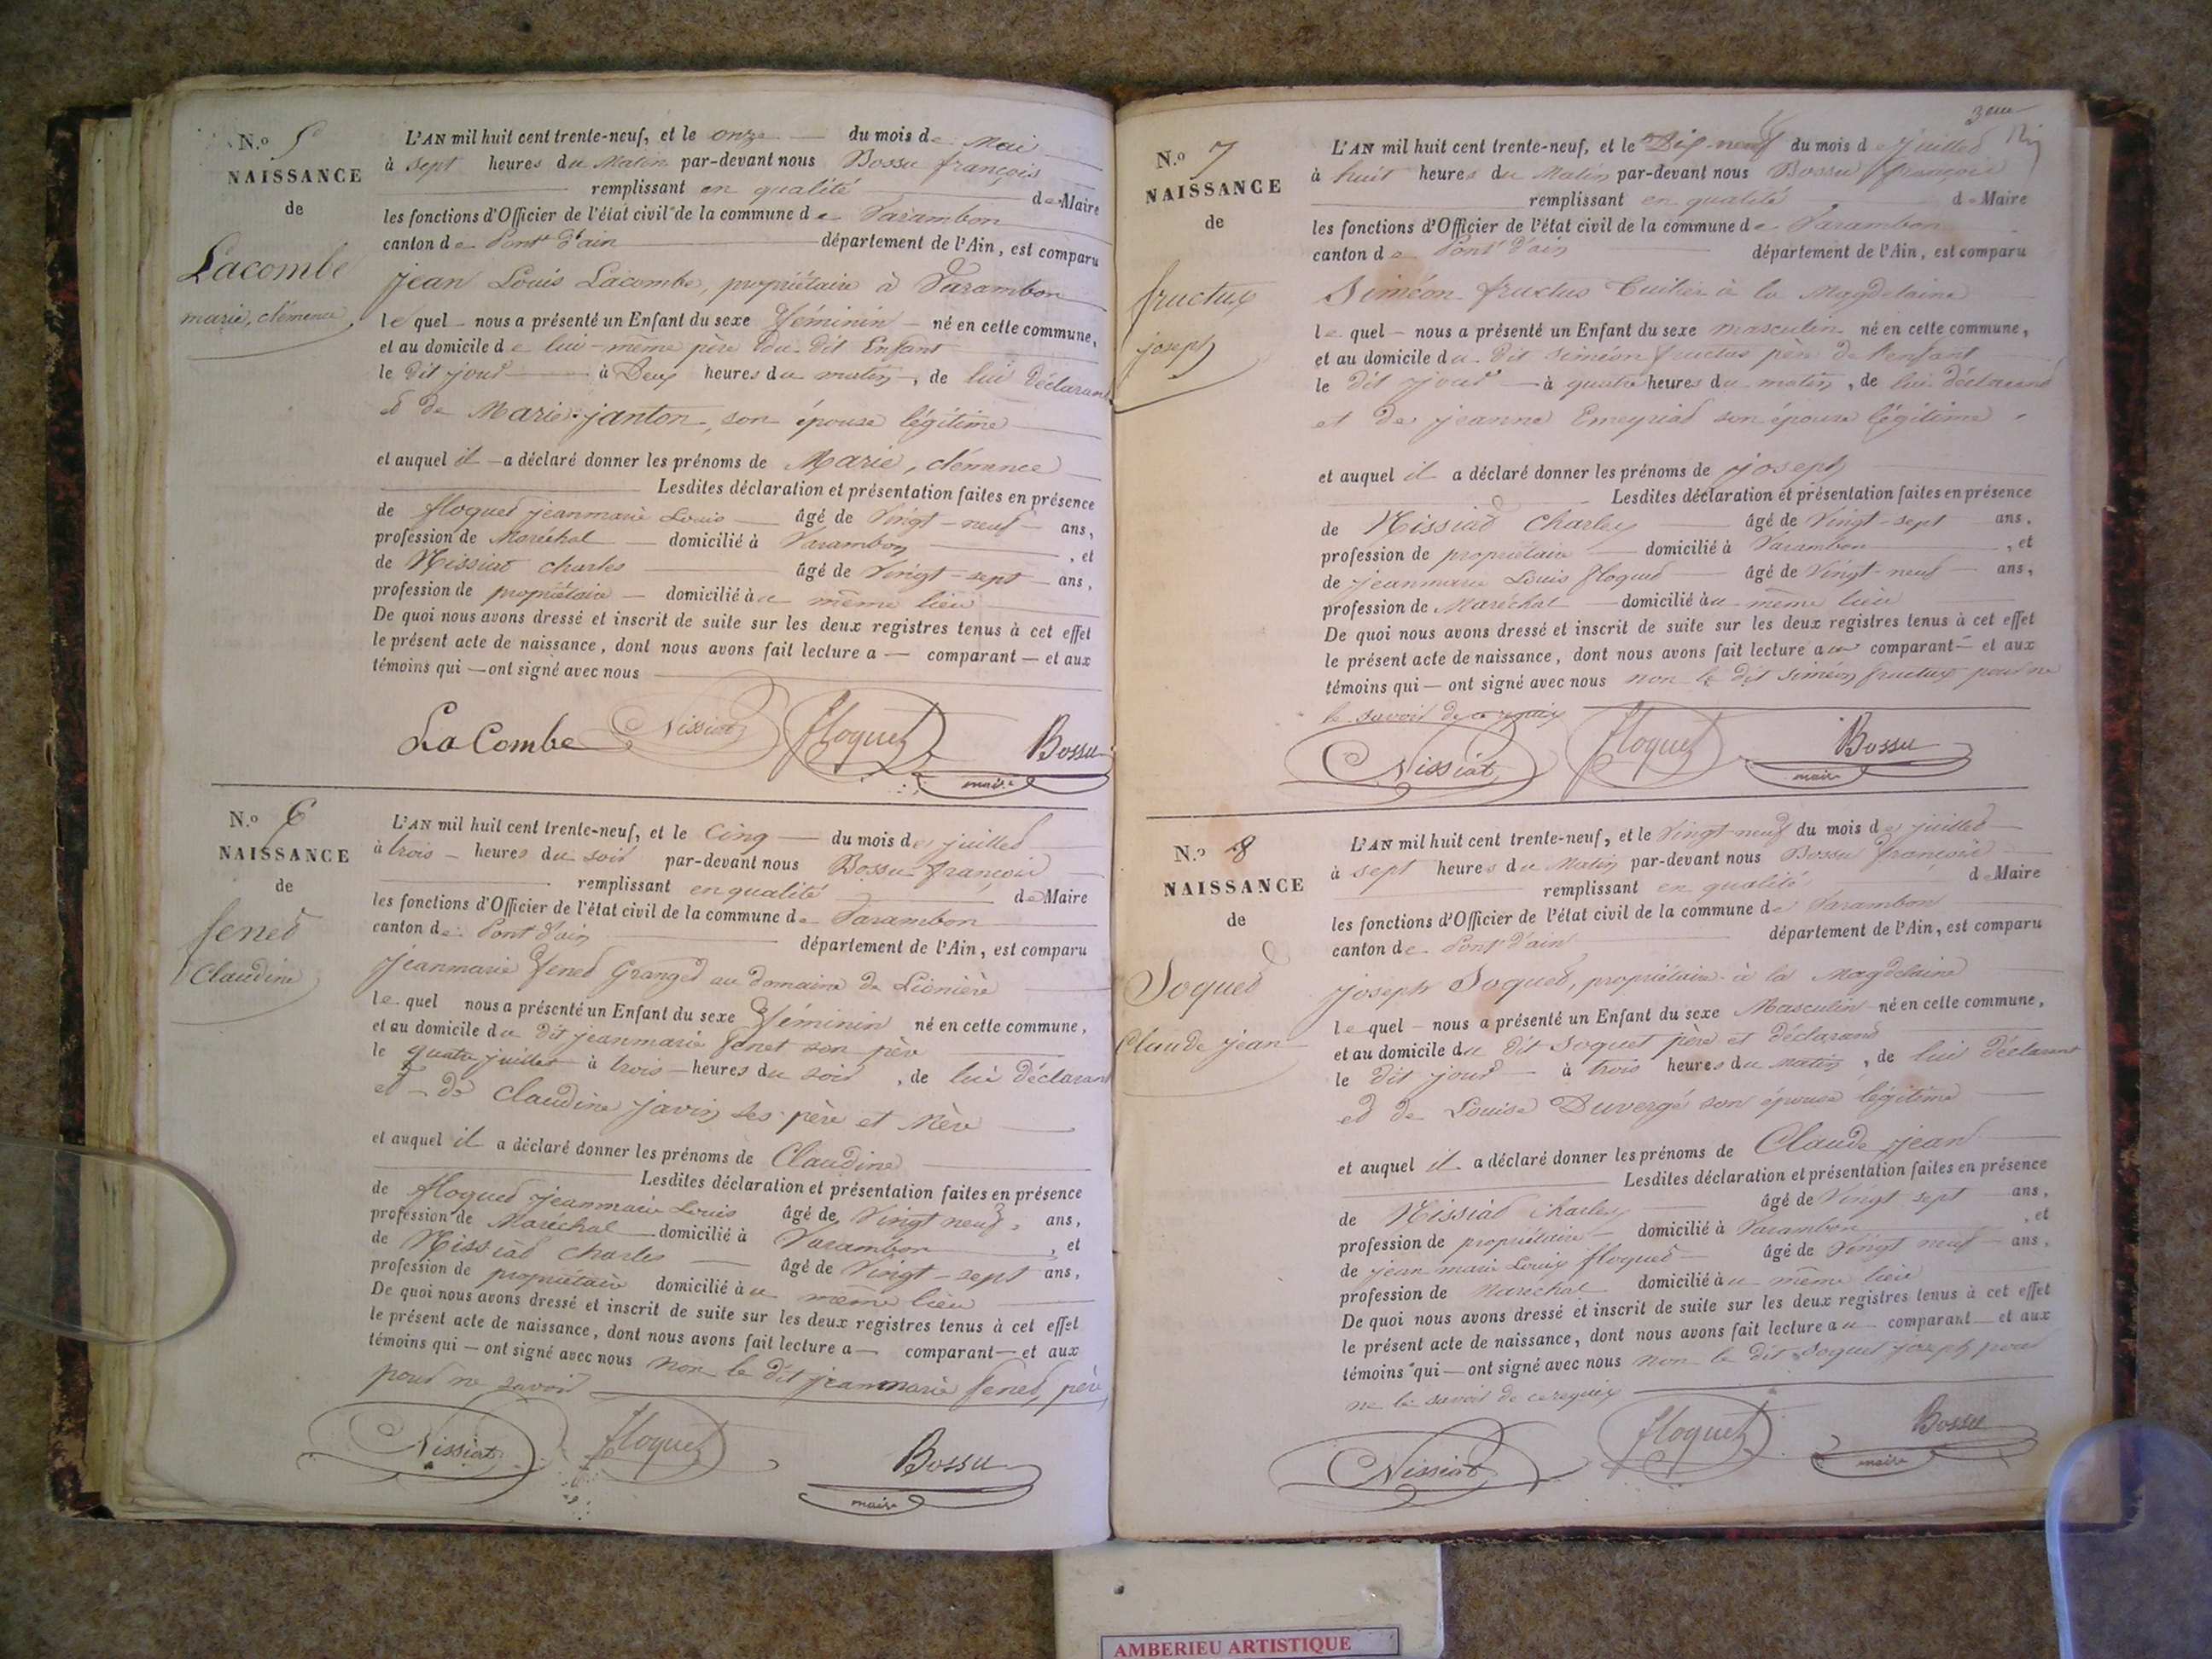 N.o 5
NAISSANCE
de
Lacombe
marie, clémence
L'AN mil huit cent trente-neuf, et le onze du mois de Mai
à sept heures du Matin par-devant nous Bossu françois
remplissant en qualité de Maire
les fonctions d'Officier de l'état civil de la commune de Varambon
canton de Pont d'ain département de l'Ain, est comparu
jean Louis Lacombe, propriétaire à Varambon
le quel nous a présenté un Enfant du sexe féminin né en cette commune,
et au domicile de lui-même père du dit Enfant
le dit jour à Deux heures du matin, de lui déclarant
et de Marie janton, son épouse légitime
et auquel il a déclaré donner les prénoms de Marie, clémence
Lesdites déclaration et présentation faites en présence
de floquet jeanmarie Louis âgé de Vingt-neuf ans,
profession de Maréchal domicilié à Varambon, et
de Nissiat charles âgé de Vingt-sept ans,
profession de propriétaire domicilié au même lieu
De quoi nous avons dressé et inscrit de suite sur les deux registres tenus à cet effet
le présent acte de naissance, dont nous avons fait lecture a comparant et aux
témoins qui ont signé avec nous
LaCombe Nissiat floquet Bossu
maire
N.o 6
NAISSANCE
de
fenet
Claudine
L'AN mil huit cent trente-neuf, et le Cinq du mois de juillet
à trois heures du soir par-devant nous Bossu françois
remplissant en qualité de Maire
les fonctions d'Officier de l'état civil de la commune de Varambon
canton de Pont d'ain département de l'Ain, est comparu
jeanmarie fenet Granget au domaine de
le quel nous a présenté un Enfant du sexe féminin né en cette commune,
et au domicile du dit jeanmarie fenet son père
le quatre juillet à trois heures du soir, de lui déclarant
et de Claudine javin ses père et Mère
et auquel il a déclaré donner les prénoms de Claudine
Lesdites déclaration et présentation faites en présence
de floquet jeanmarie Louis âgé de Vingt neuf ans,
profession de Maréchal domicilié à Varambon, et
de Nissiat charles âgé de Vingt-sept ans,
profession de propriétaire domicilié au même lieu
De quoi nous avons dressé et inscrit de suite sur les deux registres tenus à cet effet
le présent acte de naissance, dont nous avons fait lecture a comparant et aux
témoins qui ont signé avec nous non le dit jeanmarie fenet, père
pour ne savoir
Nissiat floquet Bossu
maire
N.o 7
NAISSANCE
de
fructux
joseph
L'AN mil huit cent trente-neuf, et le Dix-neuf du mois de juillet
à huit heures du Matin par-devant nous Bossu françois
remplissant en qualité de Maire
les fonctions d'Officier de l'état civil de la commune de Varambon
canton de Pont d'ain département de l'Ain, est comparu
Siméon fructus à la Magdelaine
le quel nous a présenté un Enfant du sexe masculin né en cette commune,
et au domicile du dit siméon fructus père de l'enfant
le dit jour à quatre heures du matin, de lui déclarant
et de jeanne Emeyriat son épouse légitime
et auquel il a déclaré donner les prénoms de joseph
Lesdites déclaration et présentation faites en présence
de Nissiat Charles âgé de Vingt-sept ans.
profession de propriétaire domicilié à Varambon, et
de jeanmarie Louis floquet âgé de Vingt-neuf ans,
profession de Maréchal domicilié au même lieu
De quoi nous avons dressé et inscrit de suite sur les deux registres tenus à cet effet
le présent acte de naissance, dont nous avons fait lecture au comparant et aux
témoins qui ont signé avec nous non le dit Siméon fructux pour ne
le savoir de ce requis
Nissiat floquet Bossu
maire
N.o 8
NAISSANCE
de
Soquet
Claude jean
L'AN mil huit cent trente-neuf, et le Vingt-neuf du mois de juillet
à sept heures du Matin par-devant nous Bossu françois
remplissant en qualité de Maire
les fonctions d'Officier de l'état civil de la commune de Varambon
canton de Pont d'ain département de l'Ain, est comparu
joseph Soquet, propriétaire à la Magdelaine
le quel nous a présenté un Enfant du sexe Masculin né en cette commune,
et au domicile du dit Soquet père et déclarant
le dit jour à trois heures du matin, de lui déclarant
et de Louise Duvergé son épouse légitime
et auquel il a déclaré donner les prénoms de Claude jean
Lesdites déclaration et présentation faites en présence
de Nissiat Charles âgé de Vingt sept ans,
profession de propriétaire domicilié à Varambon, et
de jean marie Louis floquet âgé de Vingt neuf ans,
profession de Maréchal domicilié au même lieu
De quoi nous avons dressé et inscrit de suite sur les deux registres tenus à cet effet
le présent acte de naissance, dont nous avons fait lecture au comparant et aux
témoins qui ont signé avec nous non le dit Soquet joseph pour
ne le savoir de ce requis
Nissiat floquet Bossu
maire
AMBERIEU ARTISTIQUE